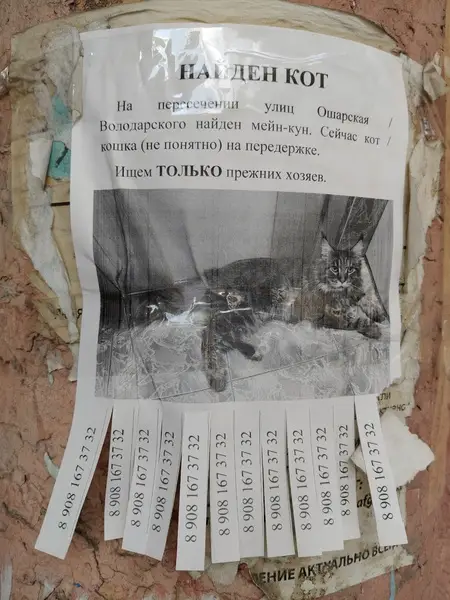 НАЙДЕН КОТ
На пересечении улиц Ошарская /
Володарского найден мейн-кун. Сейчас кот /
кошка (не понятно) на передержке.
Ищем ТОЛЬКО прежних хозяев.
8 908 167 37 32
8 908 167 37 32
8 908 167 37 32
8 908 167 37 32
8 908 167 37 32
8 908 167 37 32
8 908 167 37 32
8 908 167 37 32
8 908 167 37 32
8 908 167 37 32
8 908 167 37 32
8 908 167 37 32
ЕНИЕ АКТУАЛЬНО ВСЕ